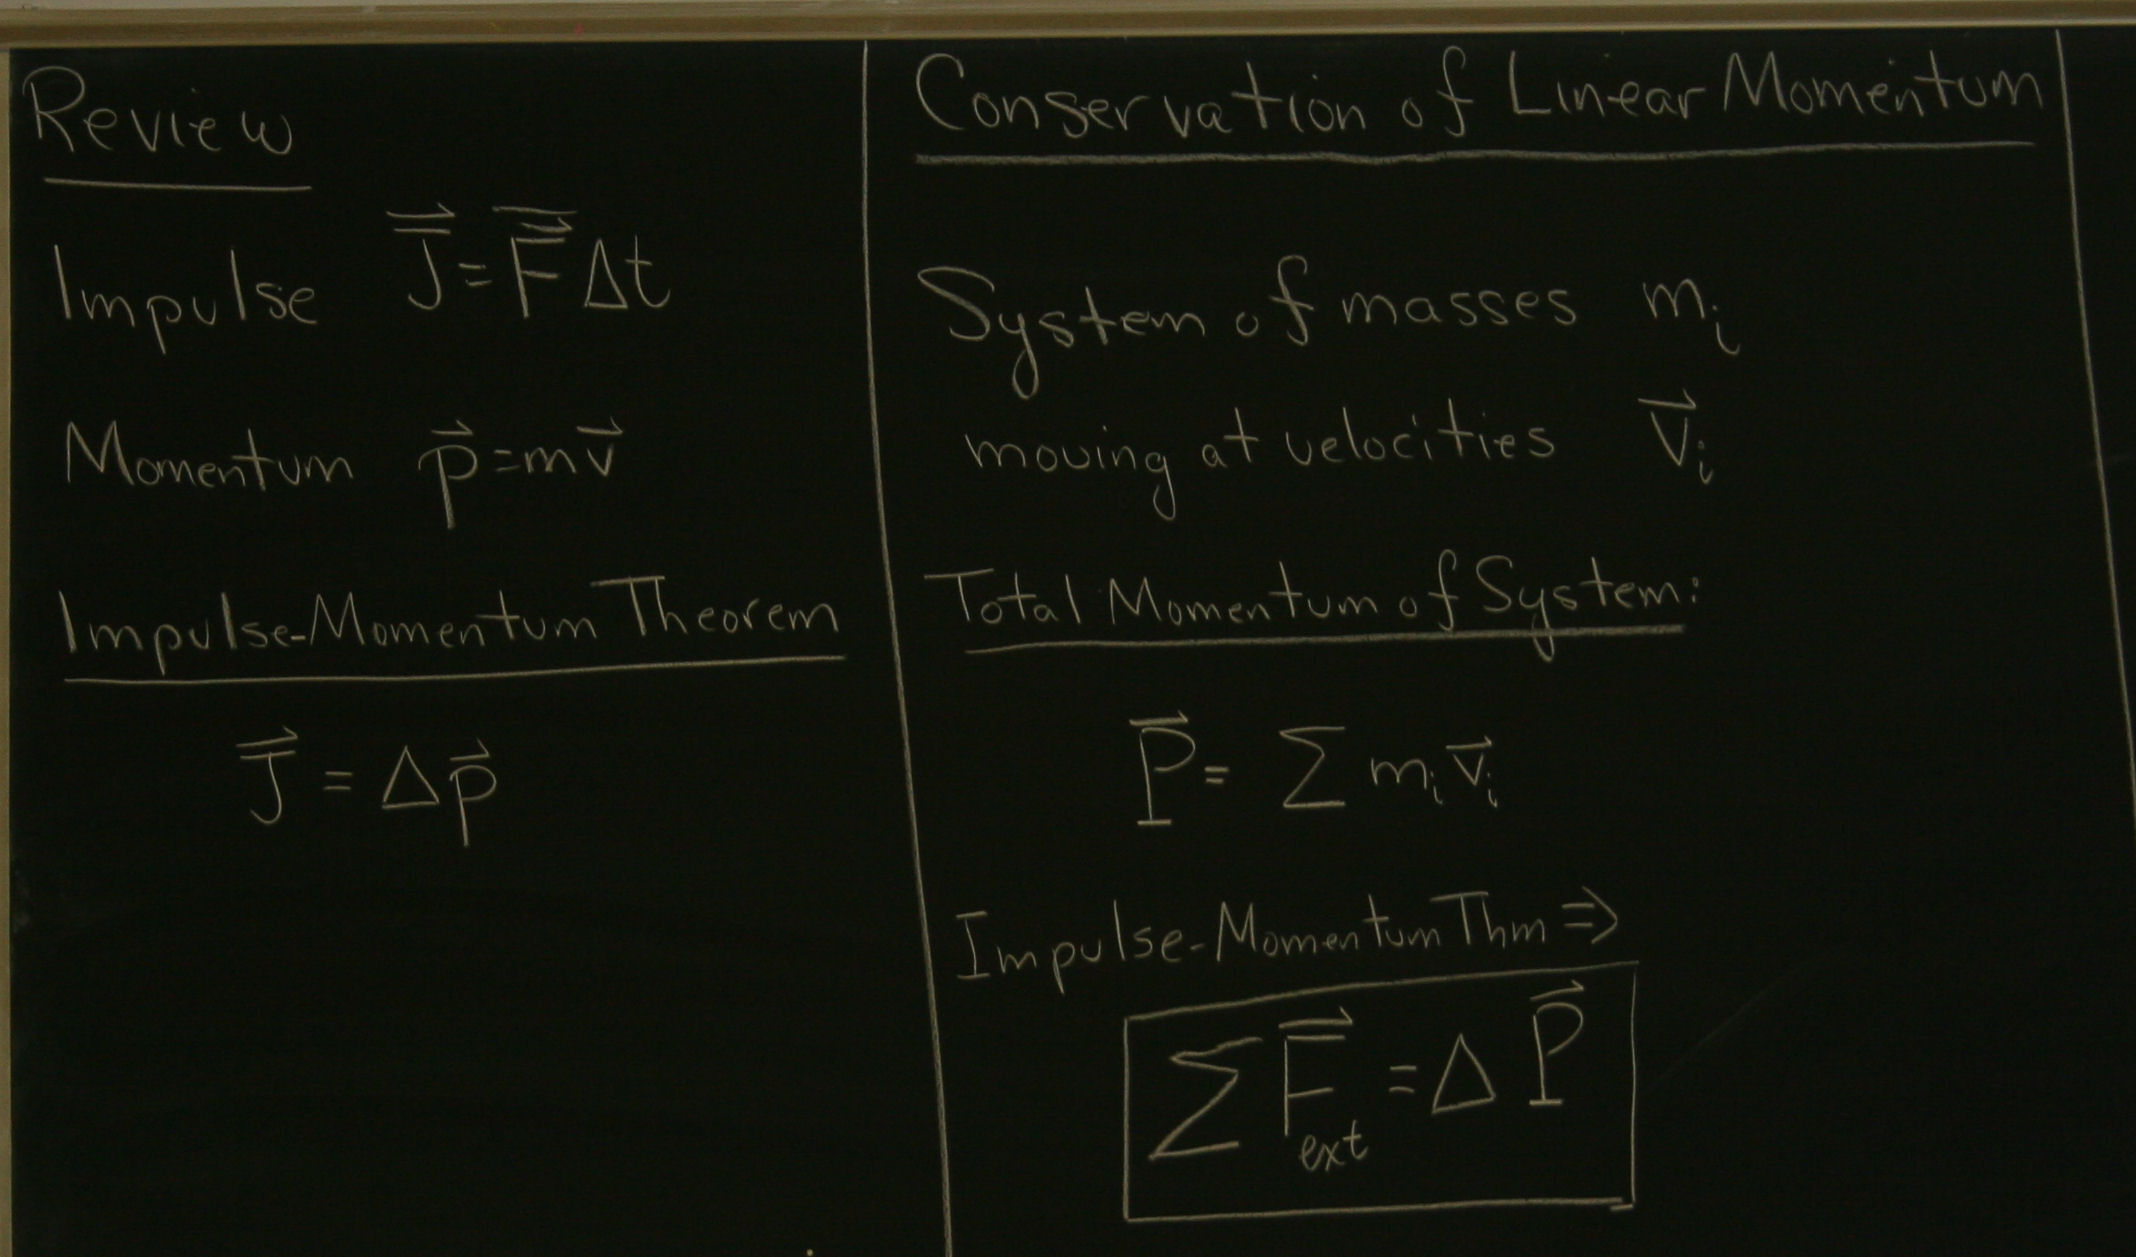 Review
Impulse J⃗ = F̅⃗ Δt
Momentum p⃗ = mv⃗
Impulse-Momentum Theorem
J⃗ = Δp⃗
Conservation of Linear Momentum
System of masses mᵢ
moving at velocities v⃗ᵢ
Total Momentum of System:
P⃗ = Σ mᵢ v⃗ᵢ
Impulse-Momentum Thm ⇒
Σ F⃗ext = Δ P⃗